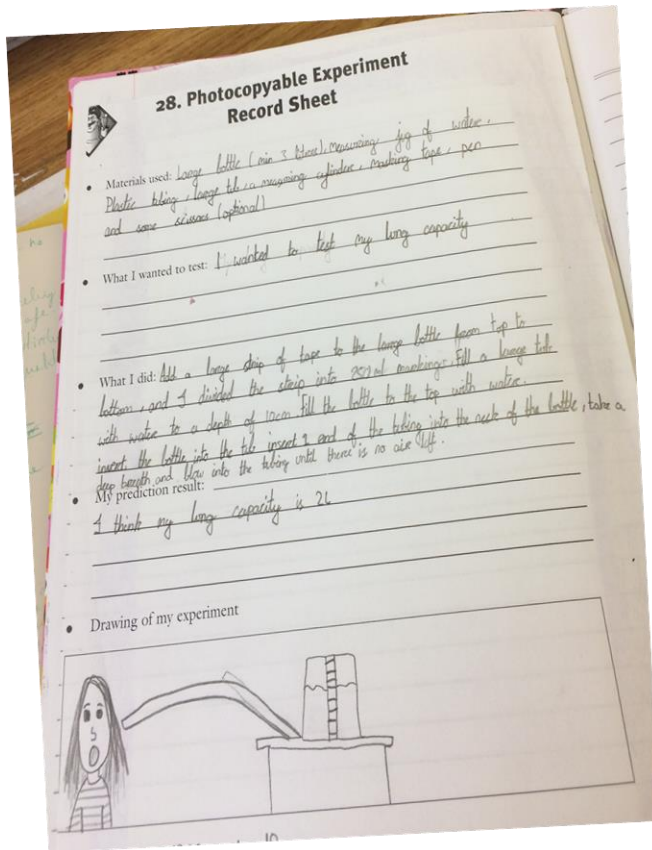 28. Photocopyable Experiment
Record Sheet
Materials used: Large bottle (min 3 litres), measuring jug of water,
Plastic tubing, large tub, a measuring cylinder, masking tape, pen
and some scissors (optional)
What I wanted to test: I wanted to test my lung capacity
What I did: Add a large strip of tape to the large bottle from top to
bottom, and I divided the strip into markings. Fill a large tub
with water to a depth of 10cm. Fill the bottle to the top with water.
insert the bottle into the tub insert 1 end of the tubing into the neck of the bottle, take a
deep breath and blow into the tubing until there is no air left.
My prediction result:
I think my lung capacity is 2L
Drawing of my experiment